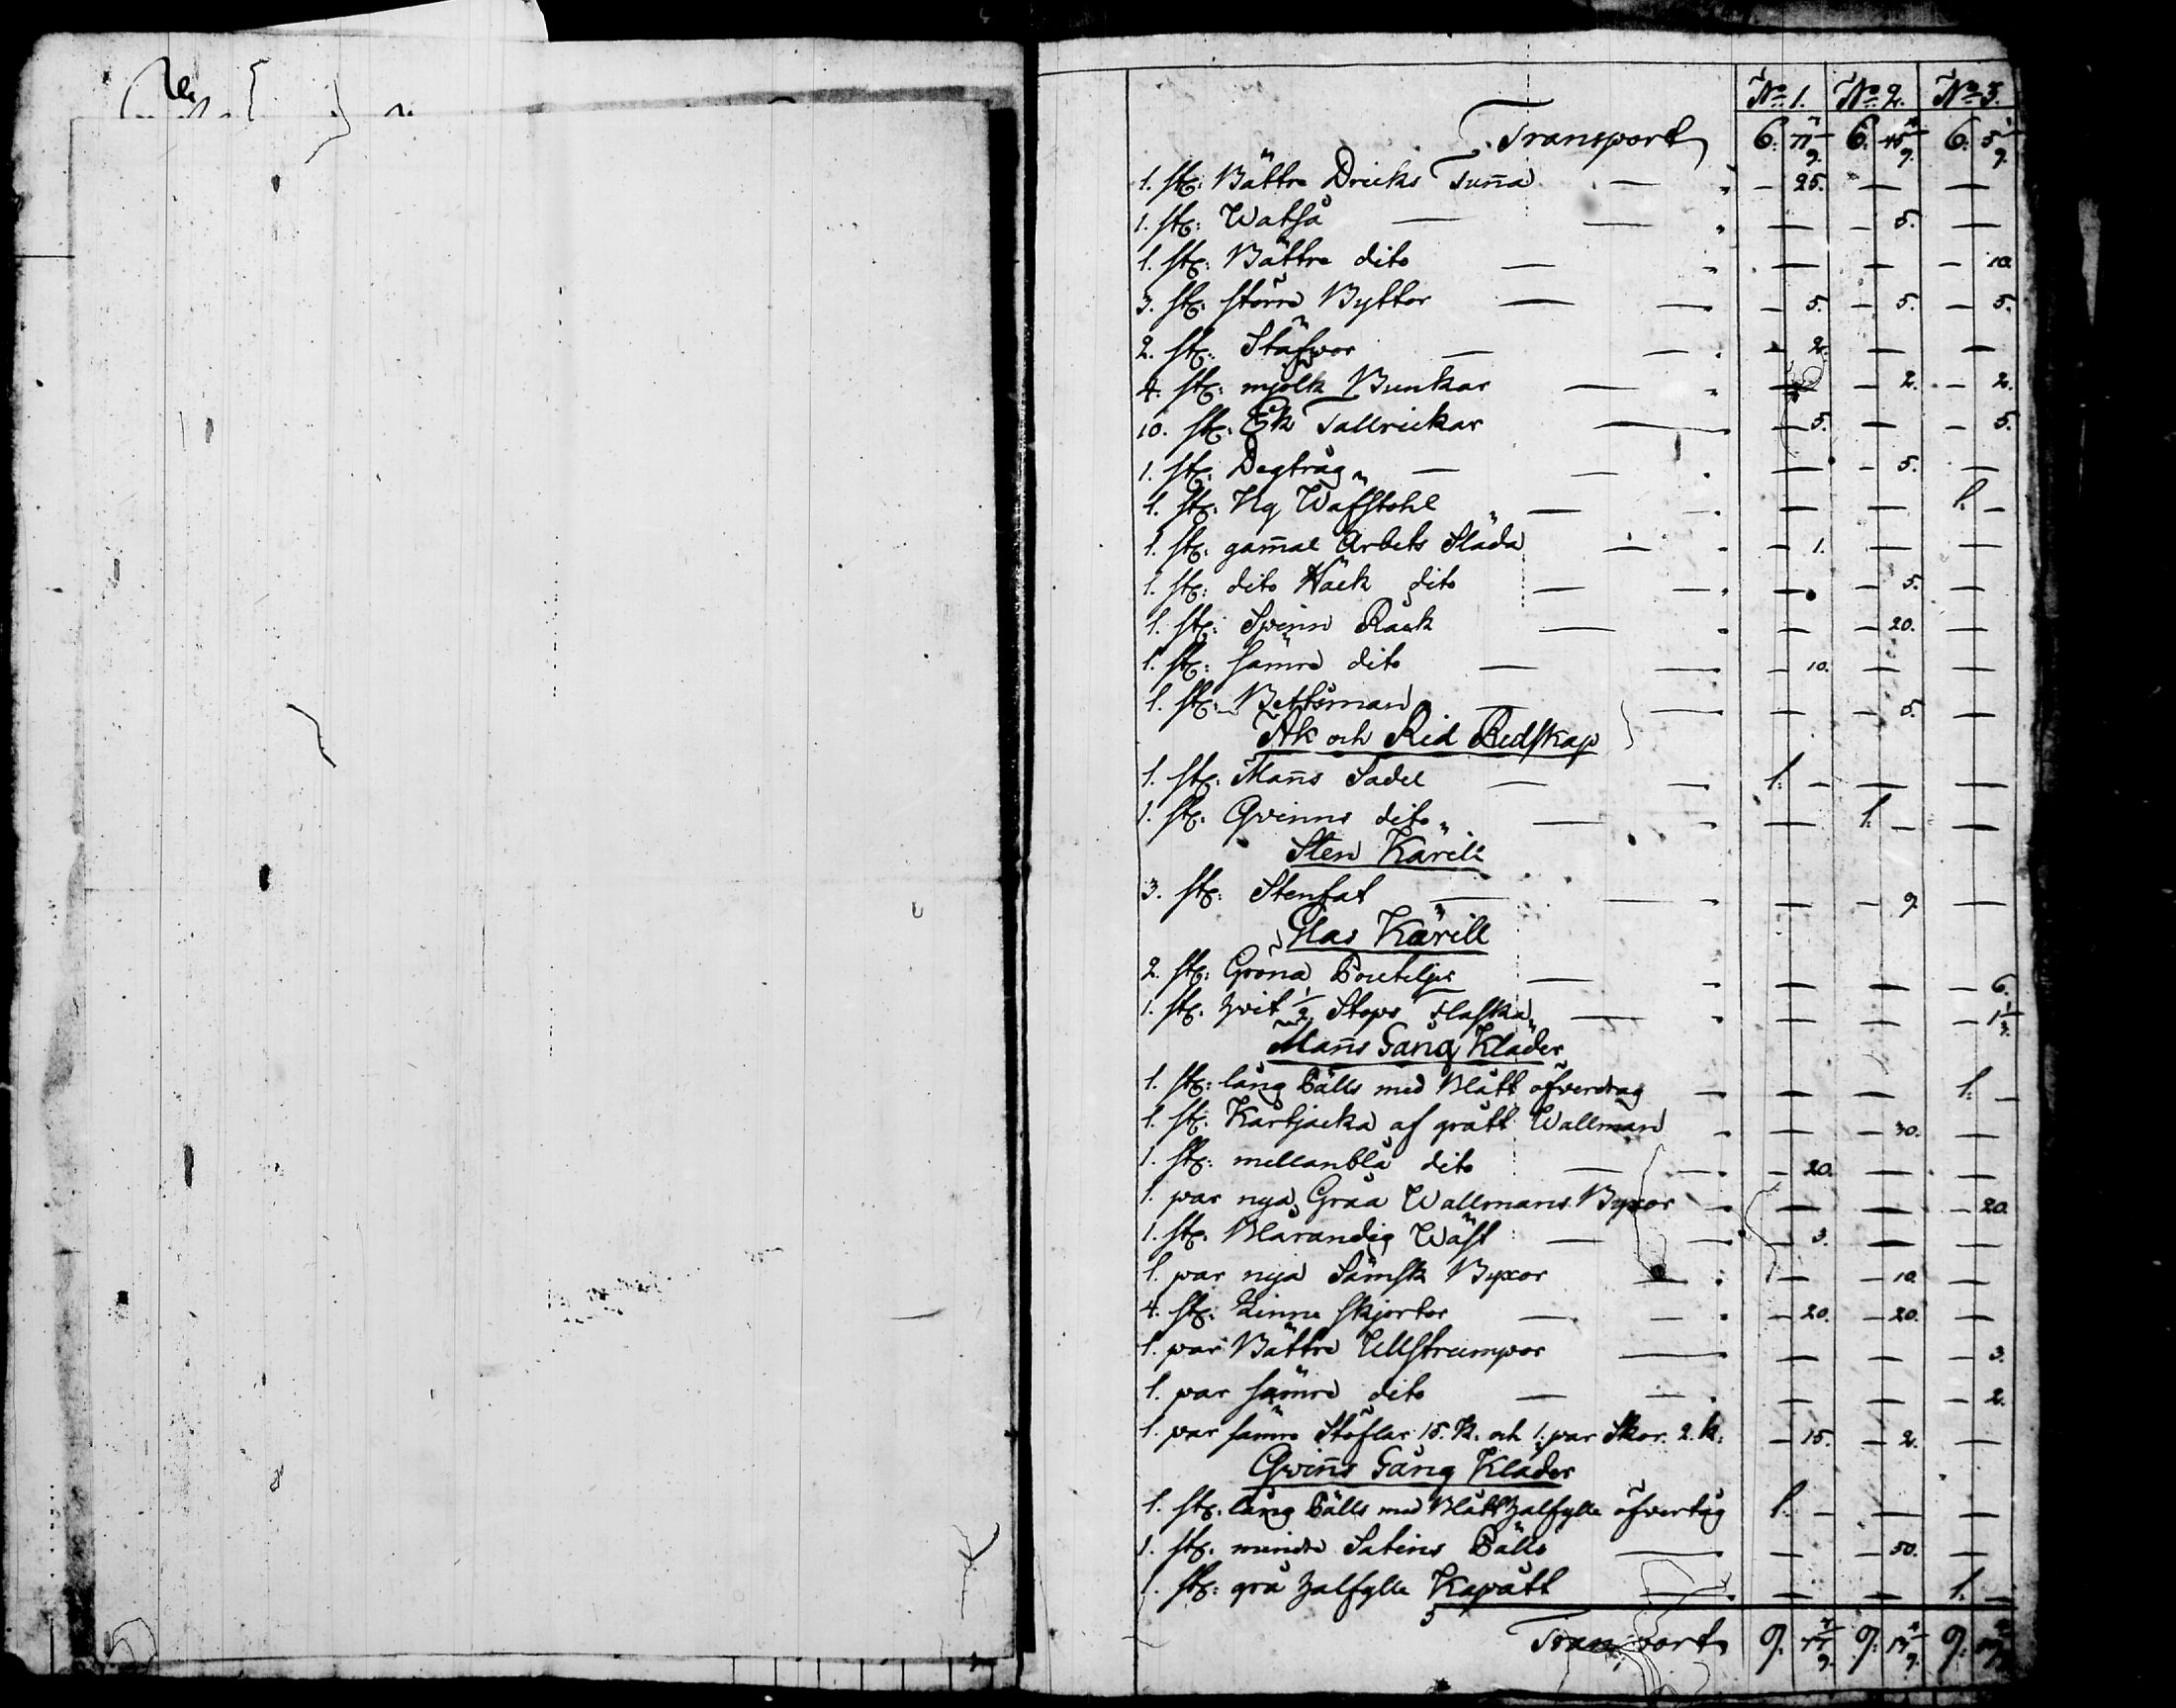 No 1. No 2. No 3.
Transport 6: 6: 6:
1. st: Bättre Dricks Tunna — 25. — —
1. st: Watså — — 5. —
1. st: Bättre dito — — — 10.
3. st: större Byttor — 5. — 5. — 5.
2. st: Stäfwor — 2. — —
4. st: mjölk Bunkar — — 2. — 2.
10. st: Ek Tallrickar — 5. — — 5.
1. st: Degtråg — — 5. —
1. st: Ny Wäfstohl — — 1. —
1. st: gamal Arbets Släda — 1. — —
1. st: dito Häck dito — — 5. —
1. st: Spinn Råck — — 20. —
1. st: sämre dito — 10. — —
1. st: Bettsman — — 5. —
Åk och Rid Redskap
1. st: Manns Sadel 1. — — —
1. st: Qvinns dito — 1. — —
Sten Kärill
3. st: Stenfat — — 9. —
Glas Kärill
2. st: Gröna Bouteljer — — — 6.
1. st: hvit 1/2 Stops Flaska — — — 1
Manns Gång Kläder
1. st: lång Pälls med Blått öfverdrag — — 1. —
1. st: Kartjacka af grått Wallman — — 30. —
1. st: mellanblå dito — 20. — —
1. par nya Gråa Wallmans Byxor — — — 20.
1. st: Blårandig Wäst — 3. — —
1. par nya Sämsk Byxor — — 10. —
4. st: Linne skjortor — 20. — 20. —
1. par Bättre Ullstrumpor — — — 3.
1. par sämre dito — — — 2.
1. par sämre Stöflar 15. K. och 1. par Skor 2. K. — 15. — 2. —
Qvinns Gång Kläder
1. st: lång Pälls med Blått halfylle öfvertåg 1. — — —
1. st: mindre Satins Pälls — — 50. —
1. st: grå halfylle Kapått — — 1. —
Transport 9. 9. 9.